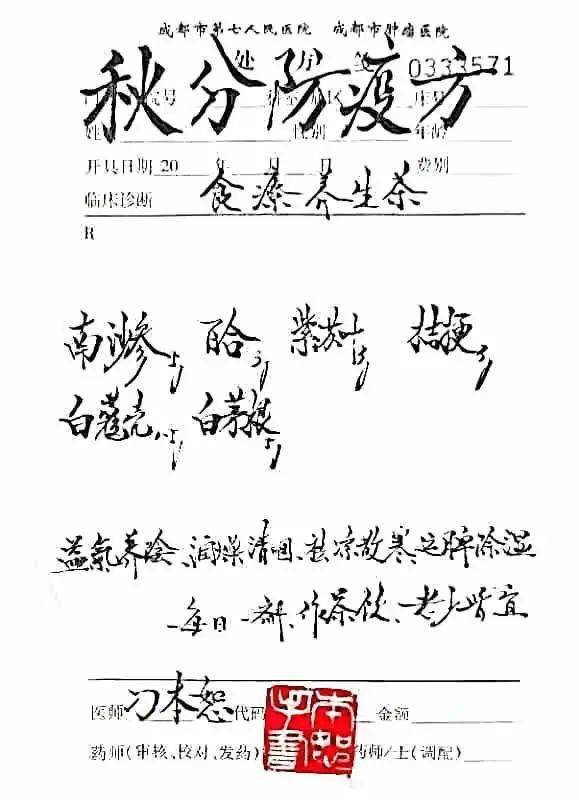 成都市第七人民医院 成都市肿瘤医院
处 方 0333571
秋分防疫方
号 床号
性别 年龄
开具日期 20 年 月 日 费别
食疗养生茶
临床诊断
R
南沙参5g 百合3g 紫苏叶 桔梗3g
白蔻壳1.5g 白茅根5g
益气养阴、润燥清咽、祛凉散寒、运脾除湿
每日一剂、作茶饮、老少皆宜
医师 刁本恕 代码 金额
本恕手书
药师(审核、校对、发药) 药师/士(调配)